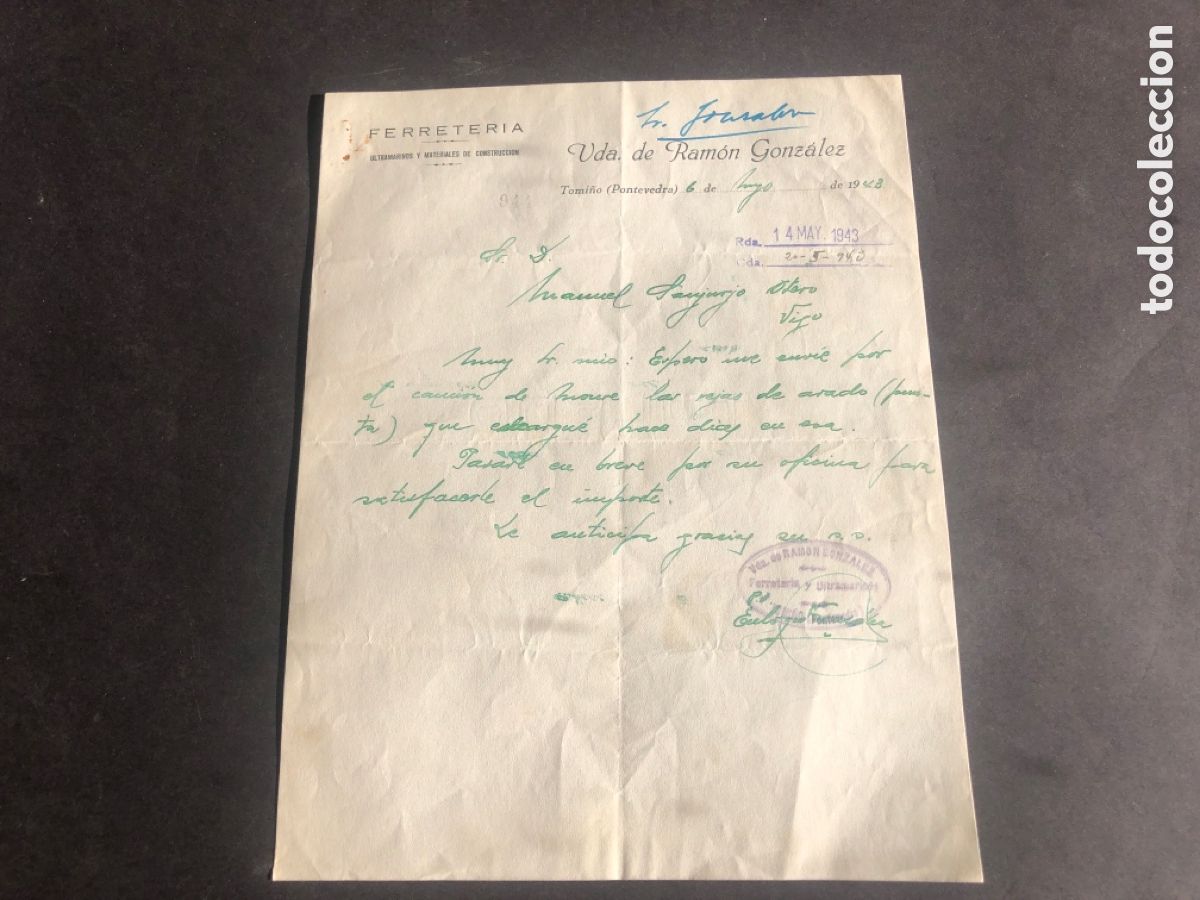 FERRETERIA
ULTRAMARINOS Y MATERIALES DE CONSTRUCCION
Sr. Gonzalez
Vda. de Ramón González
Tomiño (Pontevedra) 6 de Mayo de 1943
Rda. 14 MAY. 1943
Cda. 20-5-943
Sr. D.
Manuel Sanjurjo Otero
Vigo
Muy Sr. mio: Espero me envie por
el camión de Moure las rejas de arado (pun-
ta) que encargué hace dias en esa.
Pasaré en breve por su oficina para
satisfacerle el importe.
Le anticipa gracias su s.s.
Vda. de RAMON GONZALEZ
Ferreteria y Ultramarinos
Eulogio
todocoleccion